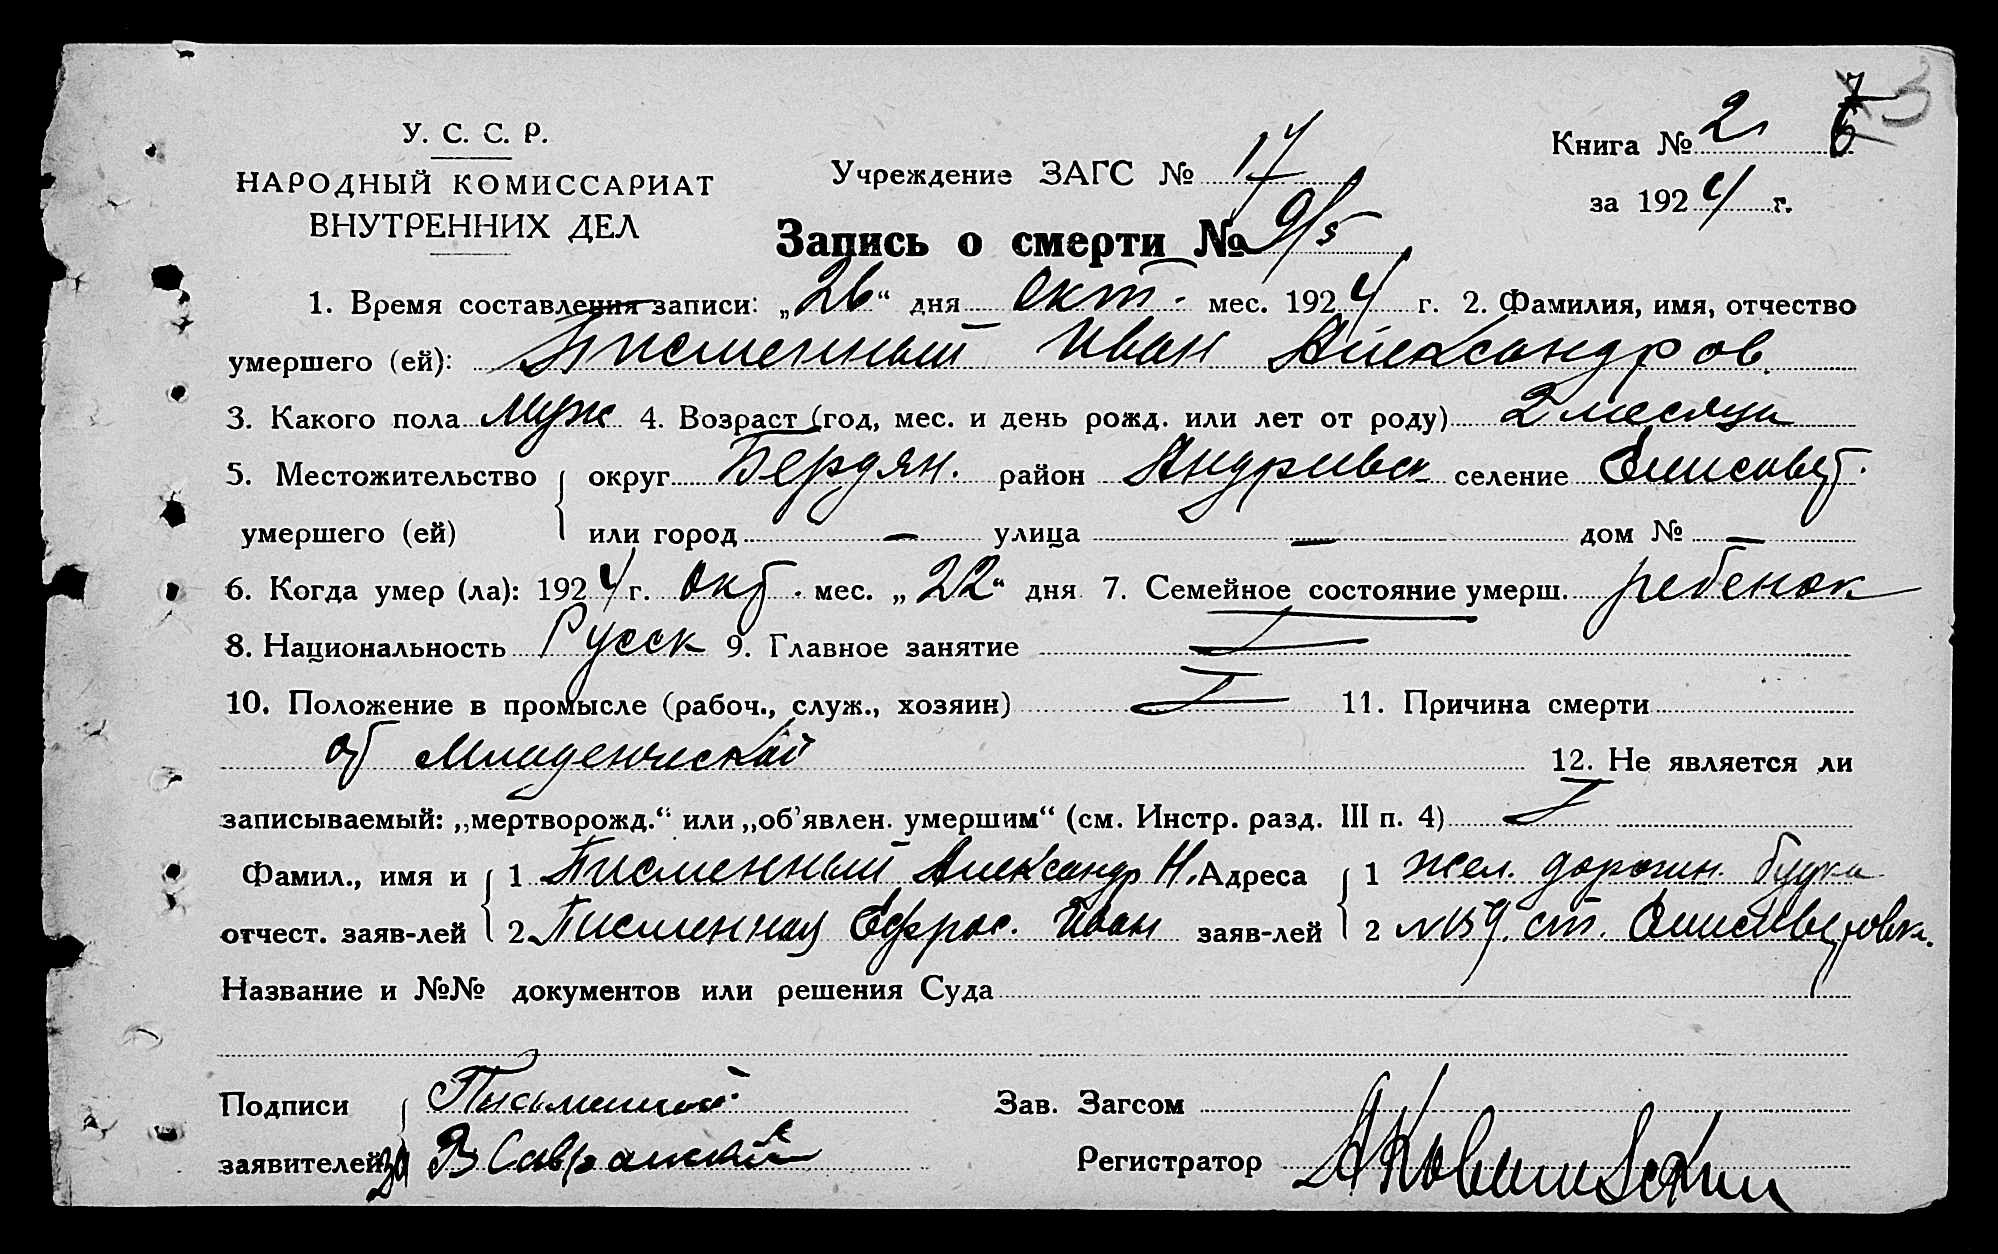 У. С. С. Р.
НАРОДНЫЙ КОМИССАРИАТ
ВНУТРЕННИХ ДЕЛ
Учреждение ЗАГС № 14
Книга № 2
за 1924 г.
Запись о смерти № 9/5
1. Время составления записи: „26“ дня окт. мес. 1924 г. 2. Фамилия, имя, отчество
умершего (ей): Писменный Иван Александров.
3. Какого пола муж 4. Возраст (год, мес. и день рожд. или лет от роду) 2 месяца
5. Местожительство округ Бердян. район Андриевск селение Елисавет.
умершего (ей) или город — улица — дом № —
6. Когда умер (ла): 1924 г. окт. мес. „22“ дня 7. Семейное состояние умерш. ребенок
8. Национальность Русск 9. Главное занятие
10. Положение в промысле (рабоч., служ., хозяин) 11. Причина смерти
от Младенческой 12. Не является ли
записываемый: „мертворожд.“ или „об’явлен. умершим“ (см. Инстр. разд. III п. 4)
Фамил., имя и 1 Писменный Александр Н. Адреса 1 жел. дорожн. будка
отчест. заяв-лей 2 Писменная Ефрос. Иван заяв-лей 2 ст. Елисаветовка.
Название и №№ документов или решения Суда
Подписи Письменный Зав. Загсом
заявителей за В Савранский Регистратор